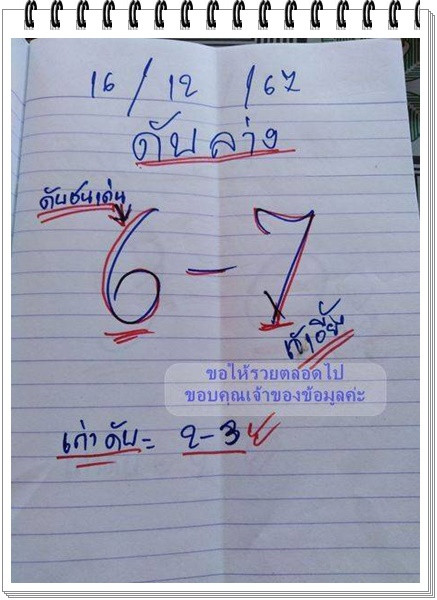 16/12/67
ดับล่าง
ดับชนเด่น
6-7
ขอให้รวยตลอดไป
ขอบคุณเจ้าของข้อมูลค่ะ
เก่าดับ= 2-3